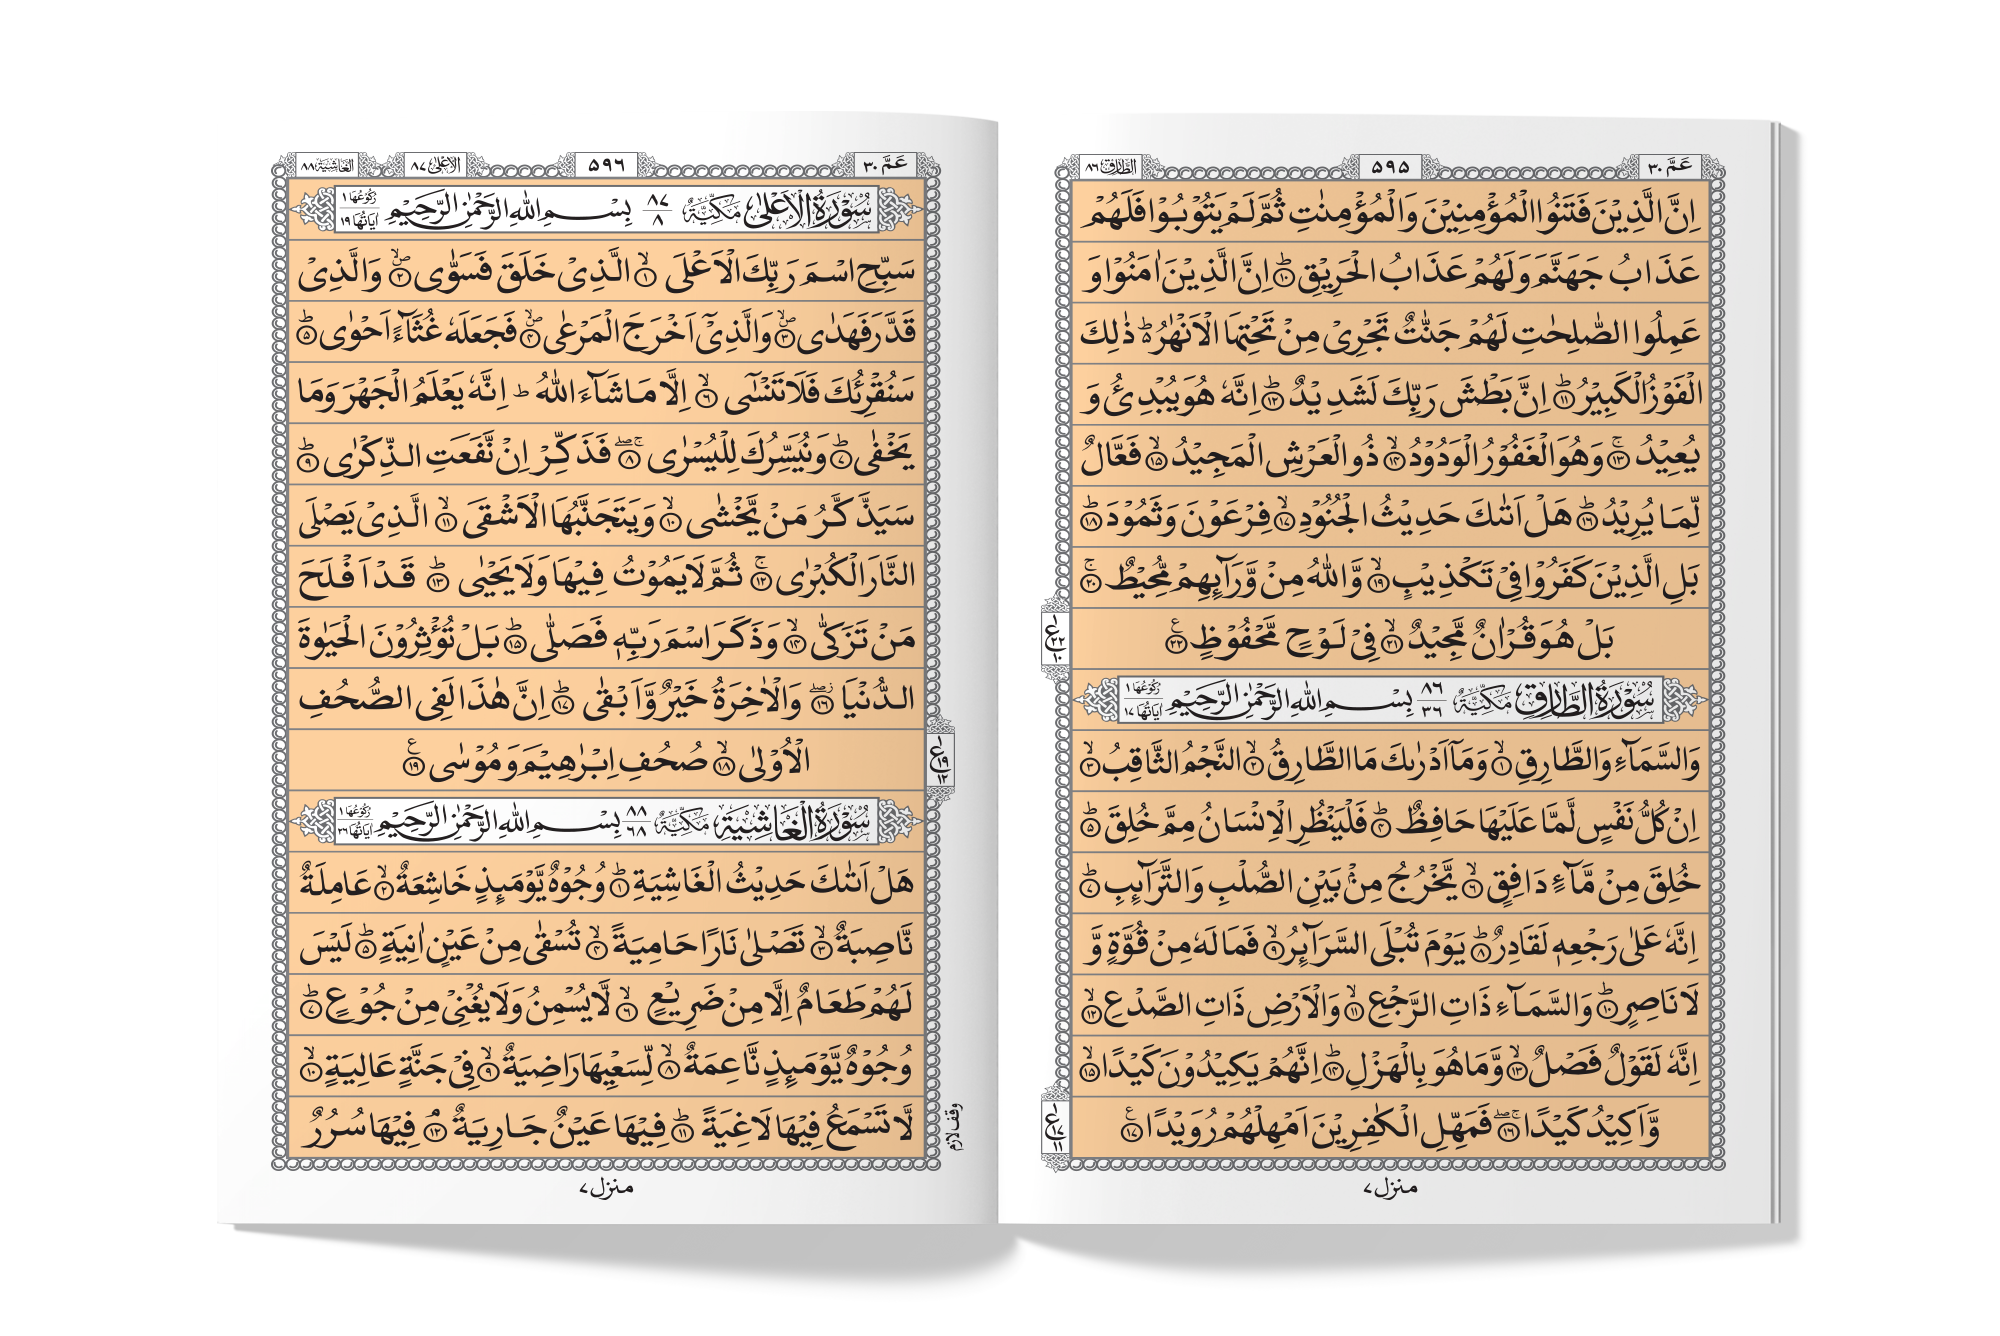 عَمَّ ۳۰
۵۹۵
الطَّارِق ۸۶
اِنَّ الَّذِيْنَ فَتَنُوا الْمُؤْمِنِيْنَ وَالْمُؤْمِنٰتِ ثُمَّ لَمْ يَتُوْبُوْا فَلَهُمْ
عَذَابُ جَهَنَّمَ وَلَهُمْ عَذَابُ الْحَرِيْقِ ؕ۱۰ اِنَّ الَّذِيْنَ اٰمَنُوْا وَ
عَمِلُوا الصّٰلِحٰتِ لَهُمْ جَنّٰتٌ تَجْرِیْ مِنْ تَحْتِهَا الْاَنْهٰرُ ؕ۬ ذٰلِكَ
الْفَوْزُ الْكَبِيْرُ ؕ۱۱ اِنَّ بَطْشَ رَبِّكَ لَشَدِيْدٌ ؕ۱۲ اِنَّهٗ هُوَ يُبْدِئُ وَ
يُعِيْدُ ۚ۱۳ وَهُوَ الْغَفُوْرُ الْوَدُوْدُ ۙ۱۴ ذُو الْعَرْشِ الْمَجِيْدُ ۙ۱۵ فَعَّالٌ
لِّمَا يُرِيْدُ ؕ۱۶ هَلْ اَتٰىكَ حَدِيْثُ الْجُنُوْدِ ۙ۱۷ فِرْعَوْنَ وَثَمُوْدَ ؕ۱۸
بَلِ الَّذِيْنَ كَفَرُوْا فِیْ تَكْذِيْبٍ ۙ۱۹ وَّاللّٰهُ مِنْ وَّرَآئِهِمْ مُّحِيْطٌ ۚ۲۰
بَلْ هُوَ قُرْاٰنٌ مَّجِيْدٌ ۙ۲۱ فِیْ لَوْحٍ مَّحْفُوْظٍ ۲۲ ع
۱ ع ۲۲ ۱۰
سُوْرَةُ الطَّارِقِ مَكِّيَّةٌ ۸۶ ۳۶ بِسْمِ اللّٰهِ الرَّحْمٰنِ الرَّحِيْمِ اٰيَاتُهَا ۱۷ رُكُوْعُهَا ۱
وَالسَّمَآءِ وَالطَّارِقِ ۙ۱ وَمَاۤ اَدْرٰىكَ مَا الطَّارِقُ ۙ۲ النَّجْمُ الثَّاقِبُ ۙ۳
اِنْ كُلُّ نَفْسٍ لَّمَّا عَلَيْهَا حَافِظٌ ؕ۴ فَلْيَنْظُرِ الْاِنْسَانُ مِمَّ خُلِقَ ؕ۵
خُلِقَ مِنْ مَّآءٍ دَافِقٍ ۙ۶ يَّخْرُجُ مِنْۢ بَيْنِ الصُّلْبِ وَالتَّرَآئِبِ ؕ۷
اِنَّهٗ عَلٰى رَجْعِهٖ لَقَادِرٌ ؕ۸ يَوْمَ تُبْلَى السَّرَآئِرُ ۙ۹ فَمَا لَهٗ مِنْ قُوَّةٍ وَّ
لَا نَاصِرٍ ؕ۱۰ وَالسَّمَآءِ ذَاتِ الرَّجْعِ ۙ۱۱ وَالْاَرْضِ ذَاتِ الصَّدْعِ ۙ۱۲
اِنَّهٗ لَقَوْلٌ فَصْلٌ ۙ۱۳ وَّمَا هُوَ بِالْهَزْلِ ؕ۱۴ اِنَّهُمْ يَكِيْدُوْنَ كَيْدًا ۙ۱۵
وَّاَكِيْدُ كَيْدًا ۚۖ۱۶ فَمَهِّلِ الْكٰفِرِيْنَ اَمْهِلْهُمْ رُوَيْدًا ۱۷ ع
۱ ع ۱۷ ۱۱
منزل ۷
عَمَّ ۳۰
۵۹۶
الْاَعْلٰى ۸۷
الغَاشِيَة ۸۸
سُوْرَةُ الْاَعْلٰى مَكِّيَّةٌ ۸۷ ۸ بِسْمِ اللّٰهِ الرَّحْمٰنِ الرَّحِيْمِ اٰيَاتُهَا ۱۹ رُكُوْعُهَا ۱
سَبِّحِ اسْمَ رَبِّكَ الْاَعْلَى ۙ۱ الَّذِیْ خَلَقَ فَسَوّٰى ۪ۙ۲ وَالَّذِیْ
قَدَّرَ فَهَدٰى ۪ۙ۳ وَالَّذِیْۤ اَخْرَجَ الْمَرْعٰى ۪ۙ۴ فَجَعَلَهٗ غُثَآءً اَحْوٰى ؕ۵
سَنُقْرِئُكَ فَلَا تَنْسٰۤى ۙ۶ اِلَّا مَا شَآءَ اللّٰهُ ؕ اِنَّهٗ يَعْلَمُ الْجَهْرَ وَمَا
يَخْفٰى ؕ۷ وَنُيَسِّرُكَ لِلْيُسْرٰى ۚۖ۸ فَذَكِّرْ اِنْ نَّفَعَتِ الذِّكْرٰى ؕ۹
سَيَذَّكَّرُ مَنْ يَّخْشٰى ۙ۱۰ وَيَتَجَنَّبُهَا الْاَشْقَى ۙ۱۱ الَّذِیْ يَصْلَى
النَّارَ الْكُبْرٰى ۚ۱۲ ثُمَّ لَا يَمُوْتُ فِيْهَا وَلَا يَحْيٰى ؕ۱۳ قَدْ اَفْلَحَ
مَنْ تَزَكّٰى ۙ۱۴ وَذَكَرَ اسْمَ رَبِّهٖ فَصَلّٰى ؕ۱۵ بَلْ تُؤْثِرُوْنَ الْحَيٰوةَ
الدُّنْيَا ۖ۱۶ وَالْاٰخِرَةُ خَيْرٌ وَّاَبْقٰى ؕ۱۷ اِنَّ هٰذَا لَفِی الصُّحُفِ
الْاُوْلٰى ۙ۱۸ صُحُفِ اِبْرٰهِيْمَ وَمُوْسٰى ۱۹ ع
۱ ع ۱۹ ۱۲
سُوْرَةُ الْغَاشِيَةِ مَكِّيَّةٌ ۸۸ ۶۸ بِسْمِ اللّٰهِ الرَّحْمٰنِ الرَّحِيْمِ اٰيَاتُهَا ۲۶ رُكُوْعُهَا ۱
هَلْ اَتٰىكَ حَدِيْثُ الْغَاشِيَةِ ؕ۱ وُجُوْهٌ يَّوْمَئِذٍ خَاشِعَةٌ ۙ۲ عَامِلَةٌ
نَّاصِبَةٌ ۙ۳ تَصْلٰى نَارًا حَامِيَةً ۙ۴ تُسْقٰى مِنْ عَيْنٍ اٰنِيَةٍ ؕ۵ لَيْسَ
لَهُمْ طَعَامٌ اِلَّا مِنْ ضَرِيْعٍ ۙ۶ لَّا يُسْمِنُ وَلَا يُغْنِیْ مِنْ جُوْعٍ ؕ۷
وُجُوْهٌ يَّوْمَئِذٍ نَّاعِمَةٌ ۙ۸ لِّسَعْيِهَا رَاضِيَةٌ ۙ۹ فِیْ جَنَّةٍ عَالِيَةٍ ۙ۱۰
لَّا تَسْمَعُ فِيْهَا لَاغِيَةً ؕ۱۱ فِيْهَا عَيْنٌ جَارِيَةٌ ۘ۱۲ فِيْهَا سُرُرٌ
وقف لازم
منزل ۷